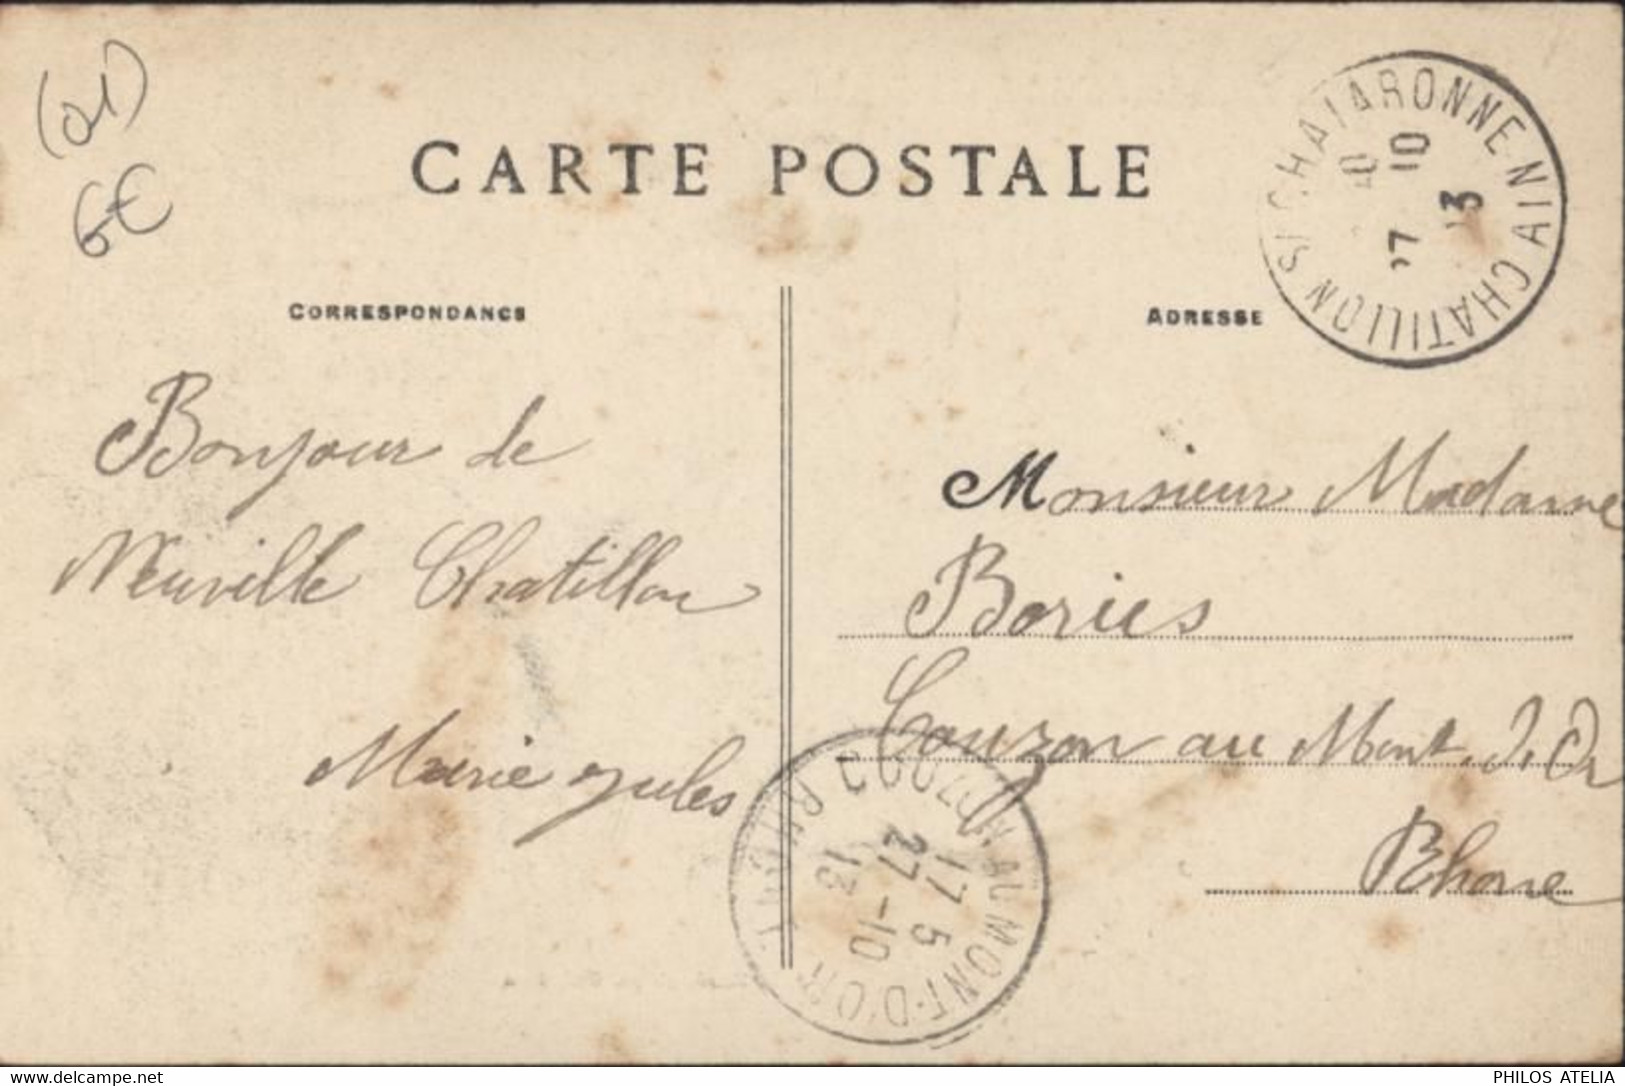 (01)
6€
CARTE POSTALE
CORRESPONDANCE
ADRESSE
CHATILLON S CHALARONNE AIN
27
10
13
Bonjour de
Neuville Chatillon
Marie Jules
Monsieur Madame
Bories
Couzon au Mont d'Or
Rhone
COUZON-AU-MONT-D'OR RHONE
17 5
27 -10
13
delcampe.net
PHILOS ATELIA